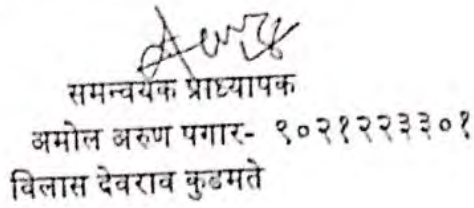 समन्वयक प्राध्यापक
अमोल अरुण पगार- ९०२१२२३३०१
विलास देवराव कुडमते